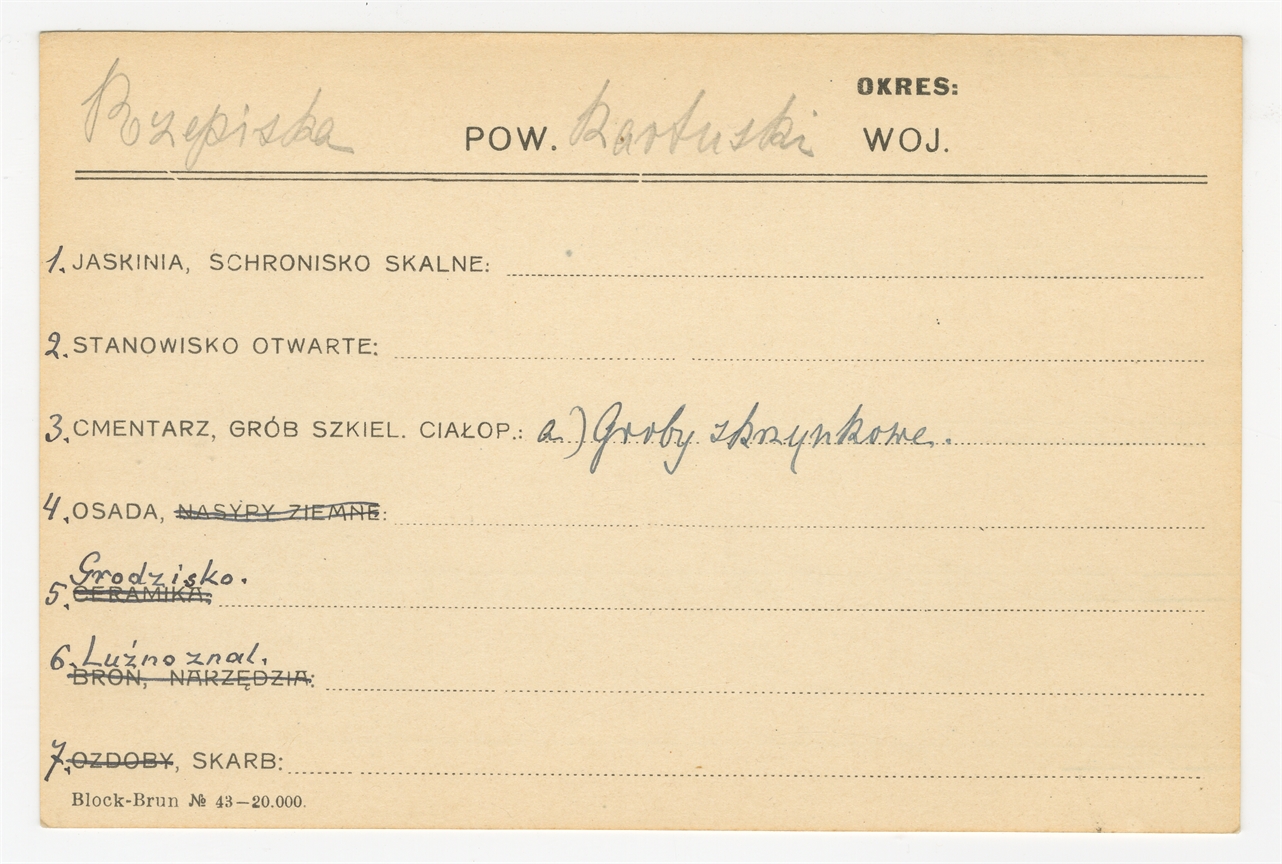 OKRES:
Rzepiska POW. Kartuski WOJ.
1. JASKINIA, SCHRONISKO SKALNE:
2. STANOWISKO OTWARTE:
3. CMENTARZ, GRÓB SZKIEL. CIAŁOP.: a) Groby skrzynkowe.
4. OSADA, NASYPY ZIEMNE:
Grodzisko.
5. CERAMIKA:
6. Luźno znal.
BROŃ, NARZĘDZIA:
7. OZDOBY, SKARB:
Block-Brun № 43—20.000.